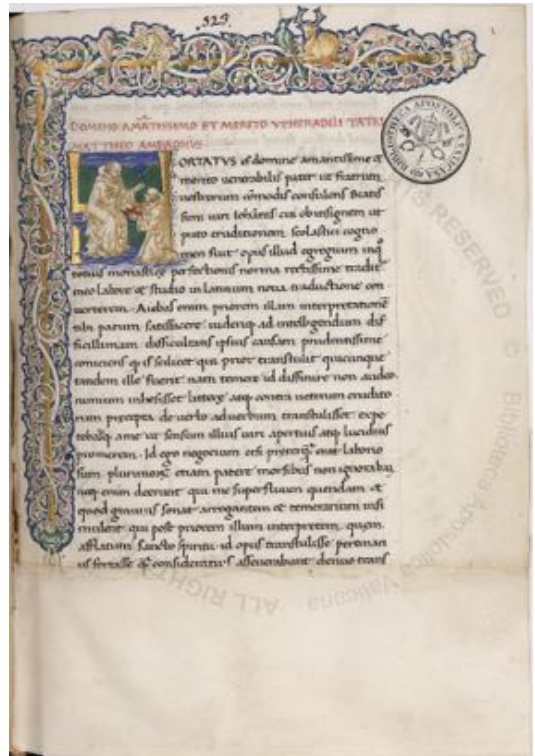 .329.
DOMINO AMĀTISSIMO ET MERITO VENERABILI PATRI
MATTHEO AMBROSIUS
ORTATVS es domine amantissime &
merito venerabilis pater ut fratrum
nostrorum cōmodis consulens Beatis
simi viri Iohānis cui ob insignem ut
puto eruditionem scolastici cogno
men fuit opus illud egregium inq̄
totius monasticę perfectionis norma rectissime tradit̄
meo labore & studio in latinum nova traductione con
verterem. Aiebas enim priorem illam interpretationē
tibi parum satisfacere: videriq; ad intelligendum dif
ficillimam difficultatis ipsius causam prudentissime
coniciens q is scilicet qui prior transtulit quicunque
tandem ille fuerit: nam temere id diffinire non audeo
nimium inhesisset litterę atq; contra veterum erudito
rum precepta de verbo ad verbum transtulisset expe
tebasq; a me ut sensum illius viri apertius atq; lucidius
promerem. Id ego negocium etsi erat laborio
sum etiam patere morsibus non ignorabā
neq; enim deerunt qui me superfluum quendam &
quod gravius sonat arrogantem & temerarium insi
mulent qui post priorem illum interpretem, quem
afflatum sancto spiritu id opus transtulisse pertinaci
us fortasse q̄ consideratius asseverabunt: denuo trans
BIBLIOTHECA APOSTOLICA VATICANA
ALL RIGHTS RESERVED © Biblioteca Apostolica Vaticana